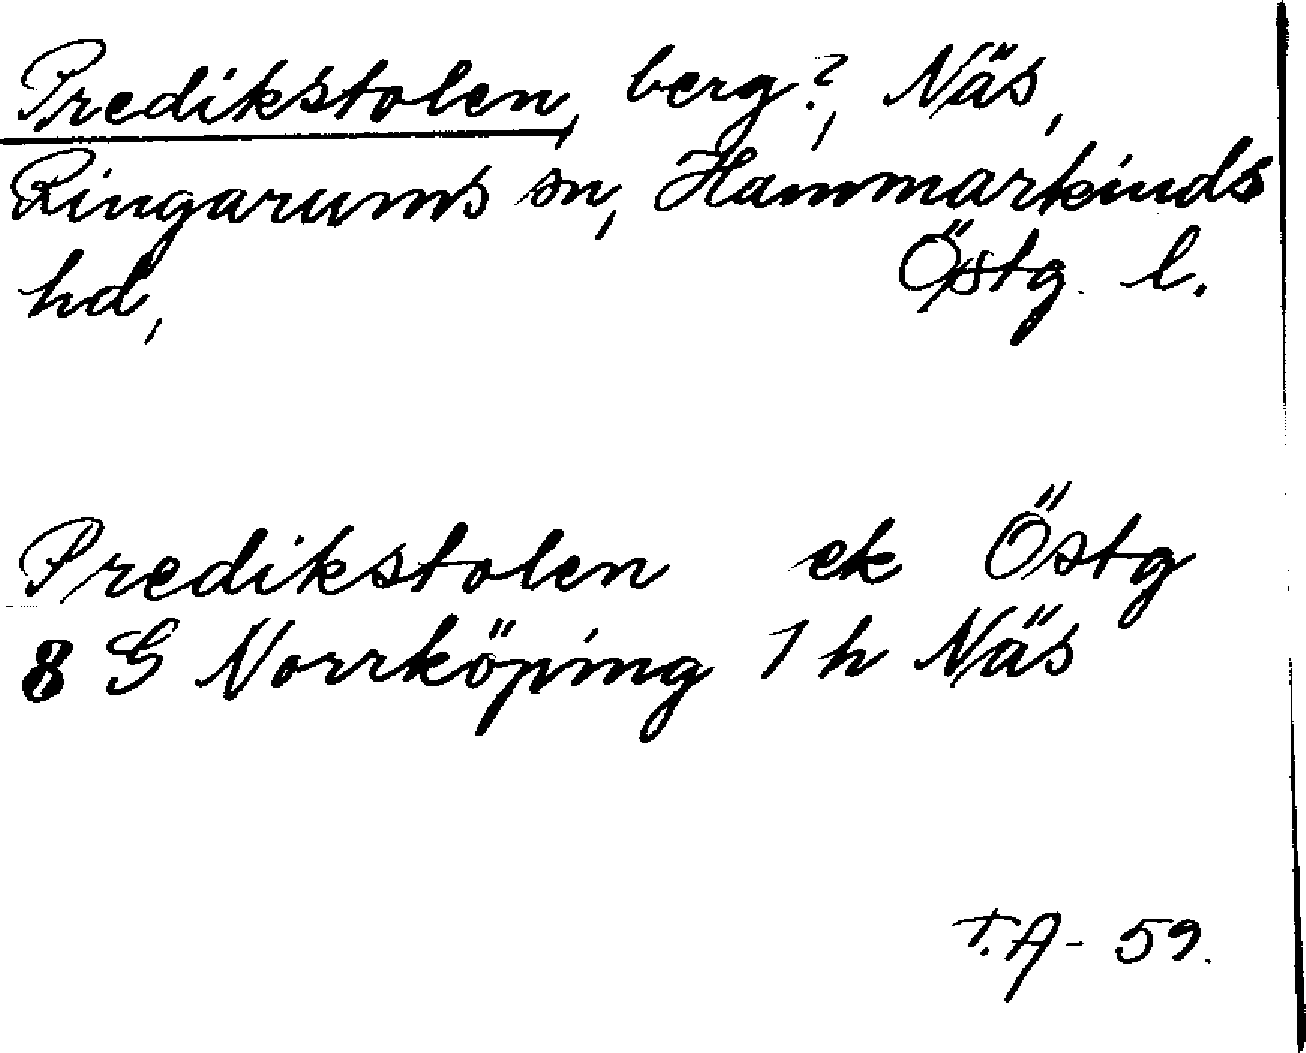 Predikstolen, berg?, Näs,
Ringarums sn, Hammarkinds
hd, Östg. l.
Predikstolen ek Östg
8 G Norrköping 1 h Näs
T.A- 59.